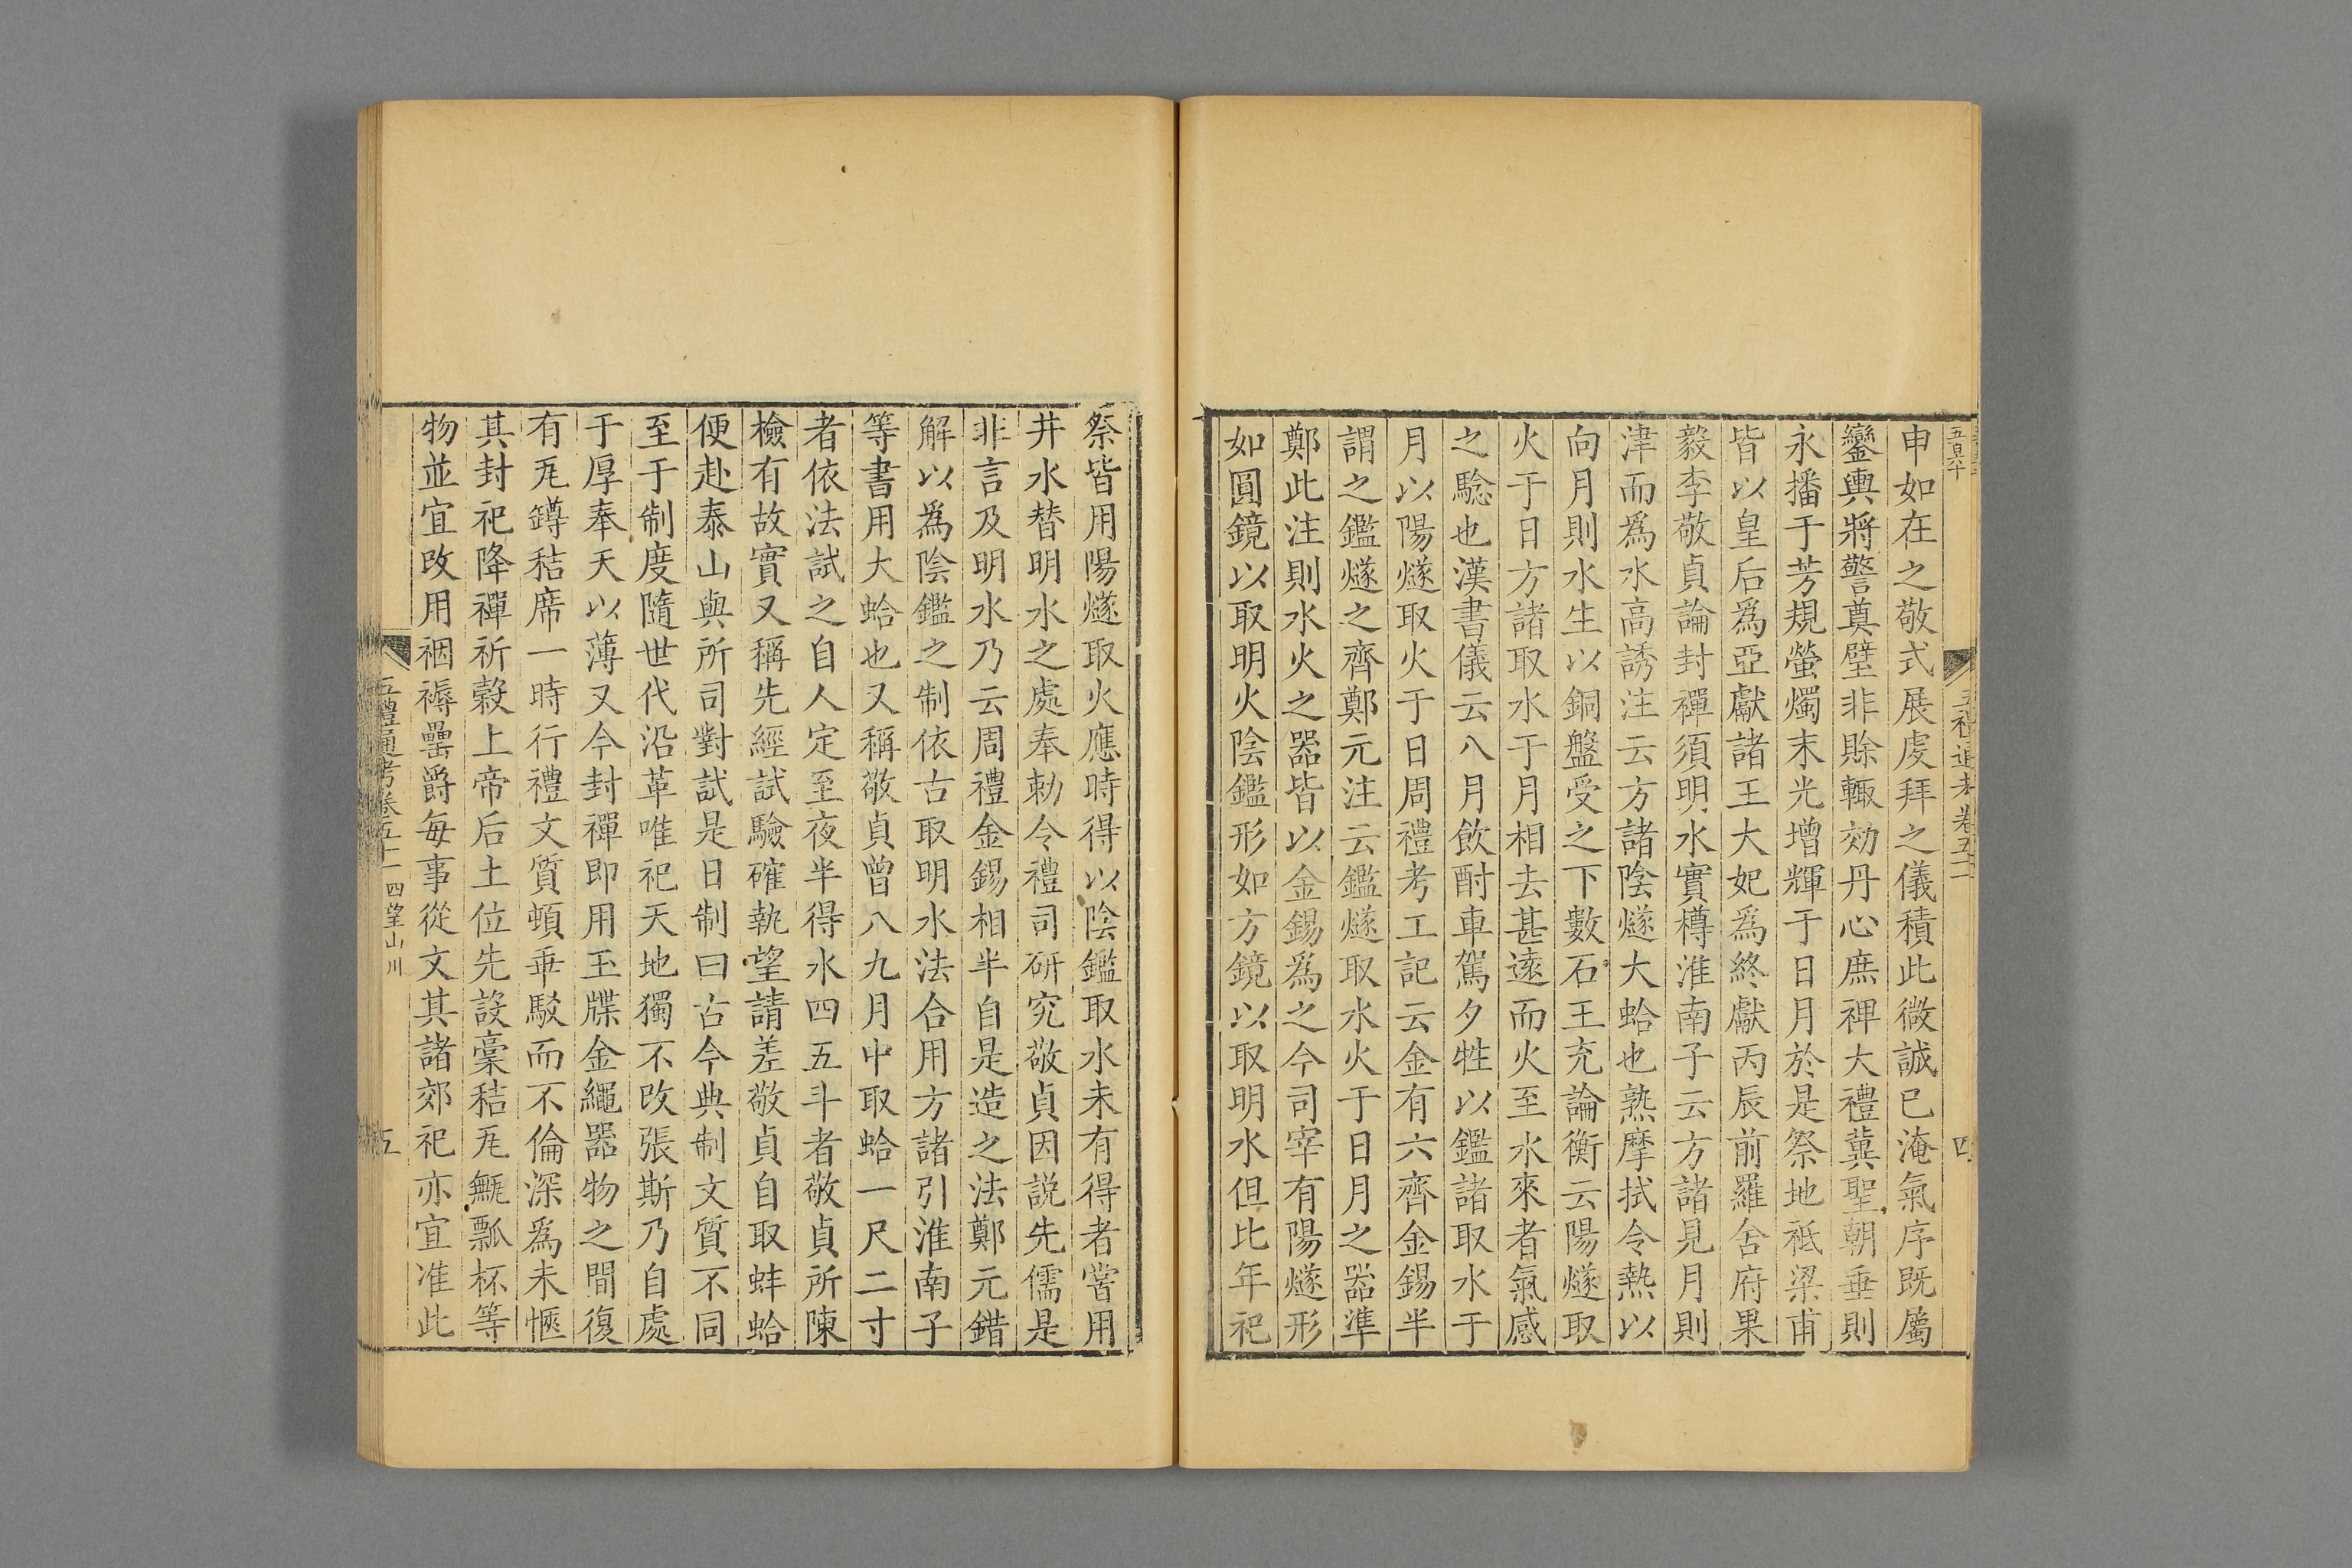 申如在之敬式展虔拜之儀積此微誠已淹氣序既屬
鑾輿將警奠璧非賖輒効丹心庶禆大禮冀聖朝垂則
永播于芳規螢燭末光增輝于日月於是祭地祗梁甫
皆以皇后為亞獻諸王大妃為終獻丙辰前羅舍府果
毅李敬貞論封禪須明水實樽淮南子云方諸見月則
津而為水高誘注云方諸陰燧大蛤也熟摩拭令熱以
向月則水生以銅盤受之下數石王充論衡云陽燧取
火于日方諸取水于月相去甚遠而火至水來者氣感
之騐也漢書儀云八月飲酎車駕夕牲以鑑諸取水于
月以陽燧取火于日周禮考工記云金有六齊金錫半
謂之鑑燧之齊鄭元注云鑑燧取水火于日月之器準
鄭此注則水火之器皆以金錫為之今司宰有陽燧形
如圓鏡以取明火陰鑑形如方鏡以取明水但比年祀
祭皆用陽燧取火應時得以陰鑑取水未有得者嘗用
井水替明水之處奉勅令禮司研究敬貞因説先儒是
非言及明水乃云周禮金錫相半自是造之法鄭元錯
解以為陰鑑之制依古取明水法合用方諸引淮南子
等書用大蛤也又稱敬貞曾八九月中取蛤一尺二寸
者依法試之自人定至夜半得水四五斗者敬貞所陳
檢有故實又稱先經試驗確執望請差敬貞自取蚌蛤
便赴泰山與所司對試是日制曰古今典制文質不同
至于制度隨世代沿革唯祀天地獨不改張斯乃自處
于厚奉天以薄又今封禪即用玉牒金繩器物之間復
有㼚鐏秸席一時行禮文質頓乖駁而不倫深為未愜
其封祀降禪祈穀上帝后土位先設稾秸㼚甒瓢杯等
物並宜改用裀褥罍爵每事從文其諸郊祀亦宜准此
五禮通考卷五十一 四望山川 五